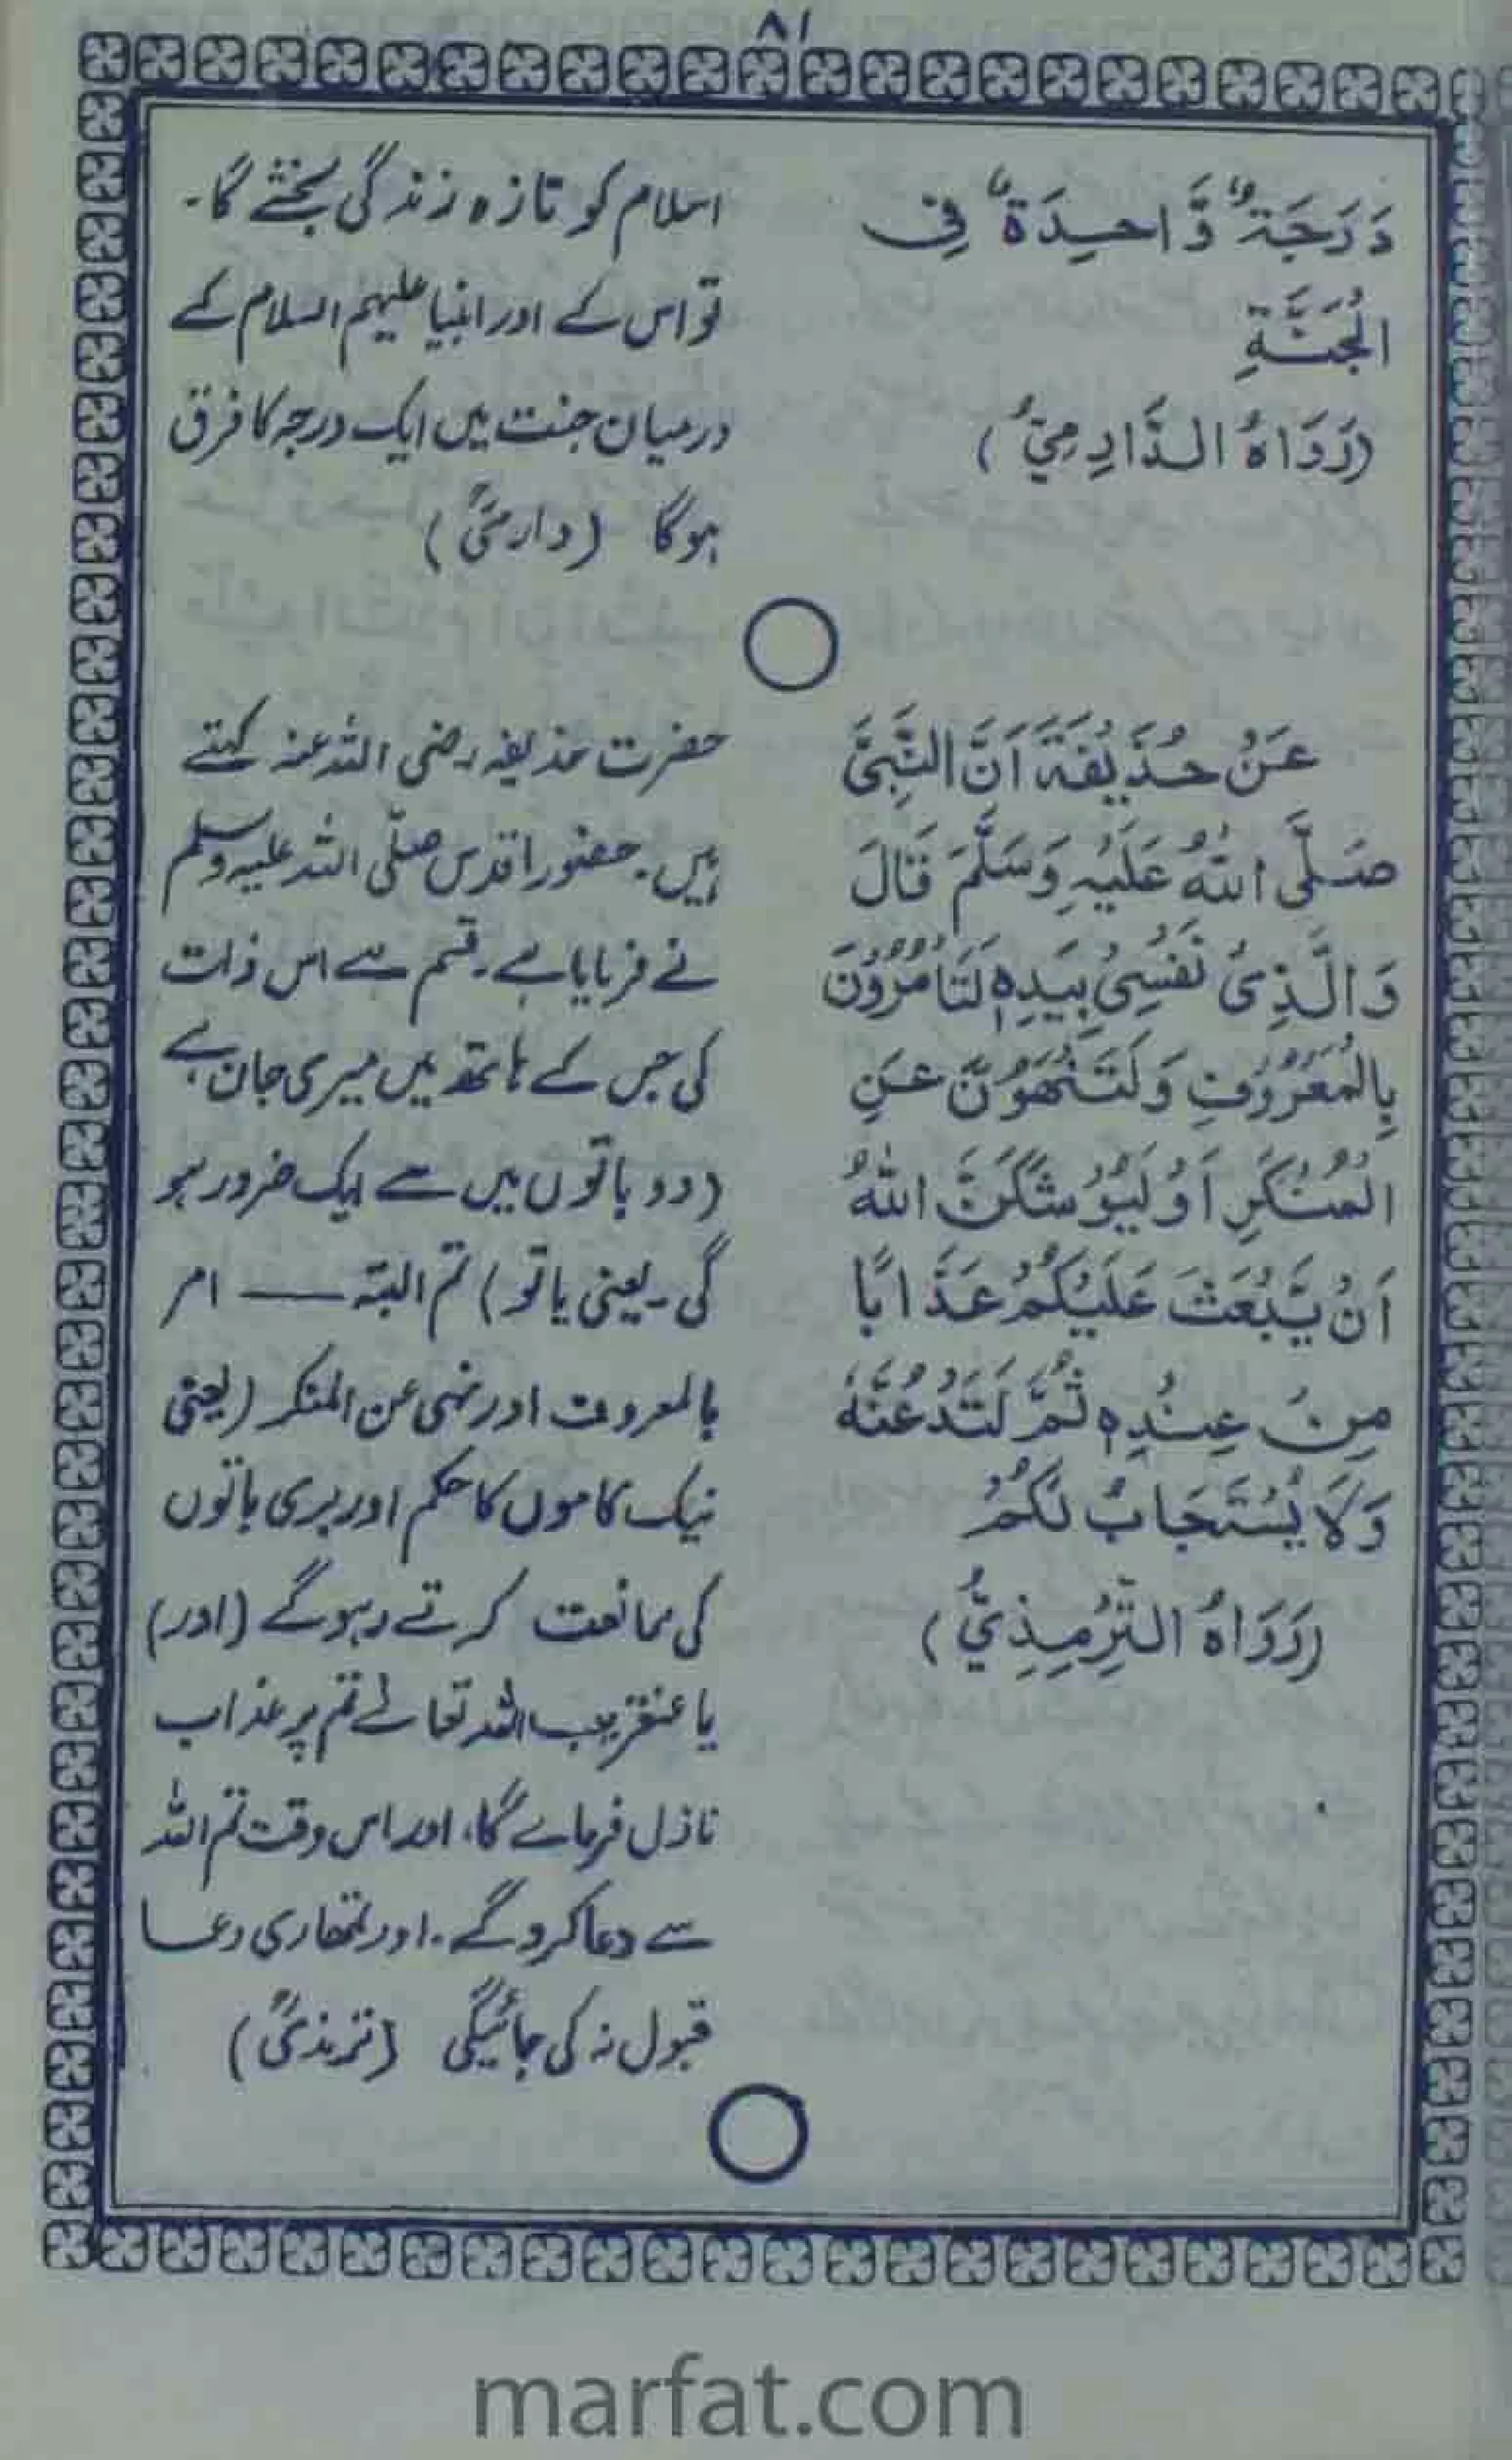 ۸۱
دَرَجَةٌ وَّاحِدَةٌ فِی
الْجَنَّةِ
(رَوَاهُ الدَّارِمِيُّ)
اسلام کو تازہ زندگی بخشے گا۔
تو اس کے اور انبیا علیہم السلام کے
درمیان جنت میں ایک درجہ کا فرق
ہوگا (دارمیؒ)
عَنْ حُذَيْفَةَ اَنَّ النَّبِیَّ
صَلَّی اللّٰهُ عَلَيْهِ وَسَلَّمَ قَالَ
وَالَّذِیْ نَفْسِیْ بِيَدِهٖ لَتَأْمُرُوْنَ
بِالْمَعْرُوْفِ وَلَتَنْهَوُنَّ عَنِ
الْمُنْكَرِ اَوْ لَيُوْشِكَنَّ اللّٰهُ
اَنْ يَّبْعَثَ عَلَيْكُمْ عَذَابًا
مِنْ عِنْدِهٖ ثُمَّ لَتَدْعُنَّهٗ
وَلَا يُسْتَجَابُ لَكُمْ
(رَوَاهُ التِّرْمِذِيُّ)
حضرت حذیفہ رضی اللہ عنہ کہتے
ہیں۔ حضور اقدس صلّی اللہ علیہ وسلم
نے فرمایا ہے۔ قسم ہے اس ذات
کی جس کے ہاتھ میں میری جان ہے
(دو باتوں میں سے ایک ضرور ہو
گی۔ یعنی یا تو) تم البتہ ـــــ امر
بالمعروف اور نہی عن المنکر (یعنی
نیک کاموں کا حکم اور بری باتوں
کی ممانعت کرتے رہوگے (اور)
یا عنقریب اللہ تعالےٰ تم پر عذاب
نازل فرماے گا، اور اس وقت تم اللہ
سے دعا کرو گے۔ اور تمھاری دعا
قبول نہ کی جائیگی (ترمذیؒ)
marfat.com